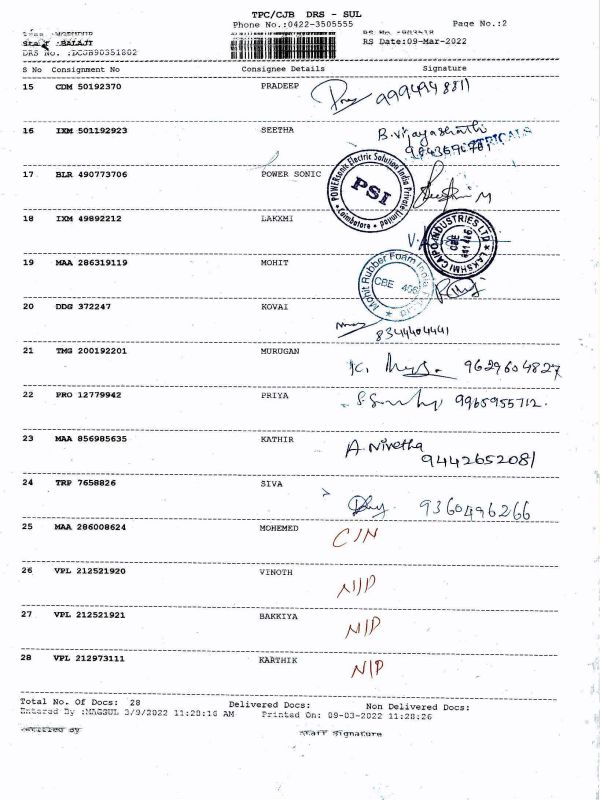 TPC/CJB DRS - SUL
Phone No.:0422-3505555 Page No.:2
Staff :BALAJI RS Date:09-Mar-2022
DRS No. :TCJB90351802
S No Consignment No Consignee Details Signature
15 CDM 50192370 PRADEEP 9994948811
16 IXM 501192923 SEETHA B.Vijayasharathi
17 BLR 490773706 POWER SONIC POWERsonic Electric Solution India Private Limited * Coimbatore * PSI
18 IXM 49892212 LAKXMI LAKSHMI CAIPO INDUSTRIES LTD CBE
19 MAA 286319119 MOHIT Mohit Rubber Foam India CBE
20 DDG 372247 KOVAI 8344404441
21 TMG 200192201 MURUGAN K. 9629604827
22 PRO 12779942 PRIYA 9965955712.
23 MAA 856985635 KATHIR A. Nivetha
9442652081
24 TRP 7658826 SIVA 9360496266
25 MAA 286008624 MOHEMED C/N
26 VPL 212521920 VINOTH N/P
27 VPL 212521921 BAKKIYA N/P
28 VPL 212973111 KARTHIK N/P
Total No. Of Docs: 28 Delivered Docs: Non Delivered Docs:
Entered By :MAGSUL 3/9/2022 11:28:16 AM Printed On: 09-03-2022 11:28:26
Verified By Staff Signature